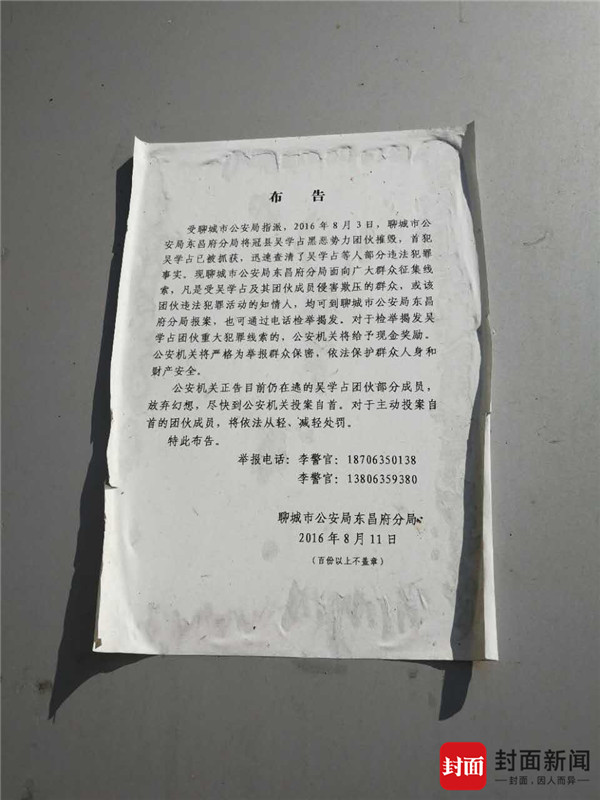 布 告
受聊城市公安局指派，2016 年 8 月 3 日，聊城市公
安局东昌府分局将冠县吴学占黑恶势力团伙摧毁，首犯
吴学占已被抓获，迅速查清了吴学占等人部分违法犯罪
事实。现聊城市公安局东昌府分局面向广大群众征集线
索，凡是受吴学占及其团伙成员侵害欺压的群众，或该
团伙违法犯罪活动的知情人，均可到聊城市公安局东昌
府分局报案，也可通过电话检举揭发。对于检举揭发吴
学占团伙重大犯罪线索的，公安机关将给予现金奖励。
公安机关将严格为举报群众保密，依法保护群众人身和
财产安全。
公安机关正告目前仍在逃的吴学占团伙部分成员，
放弃幻想，尽快到公安机关投案自首。对于主动投案自
首的团伙成员，将依法从轻、减轻处罚。
特此布告。
举报电话：李警官：18706350138
李警官：13806359380
聊城市公安局东昌府分局
2016 年 8 月 11 日
（百份以上不盖章）
封面 封面新闻
封面，因人而异